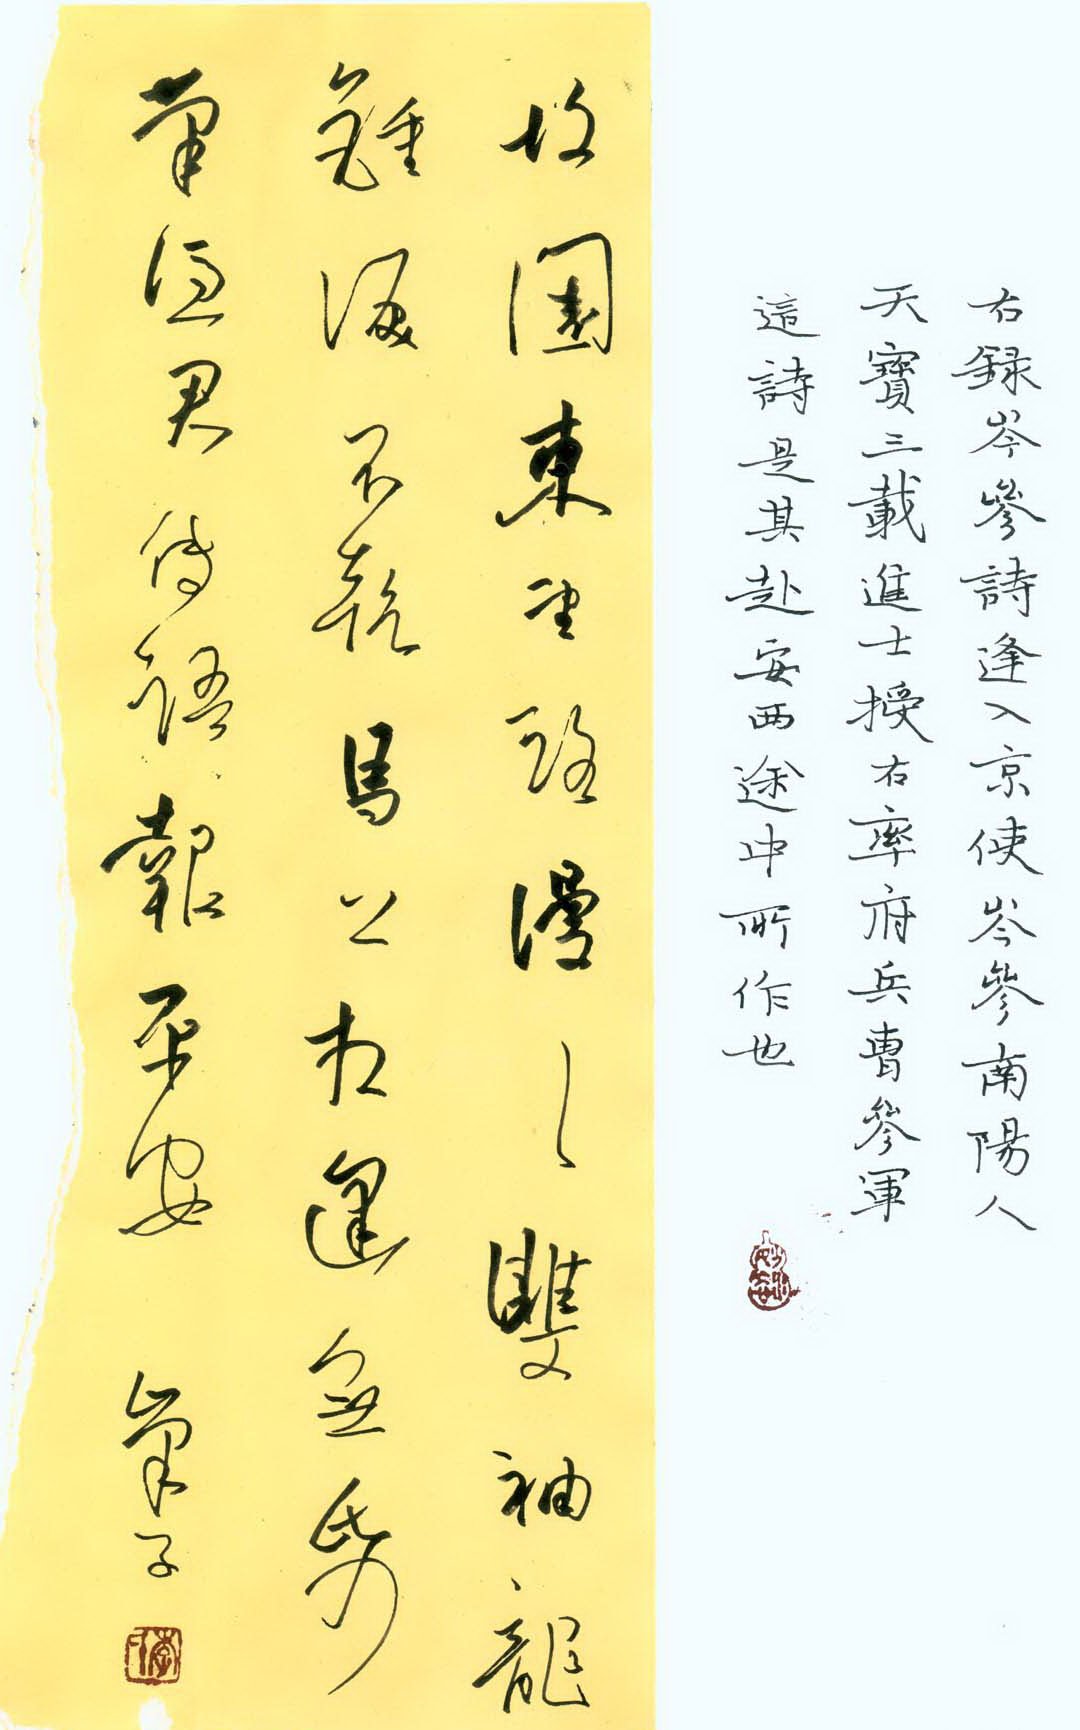 右録岑參詩逢入京使岑參南陽人
天寶三載進士授右率府兵曹參軍
這詩是其赴安西途中所作也
故園東望路漫〻雙袖龍
鍾淚不乾馬上相逢無紙
筆憑君傳語報平安